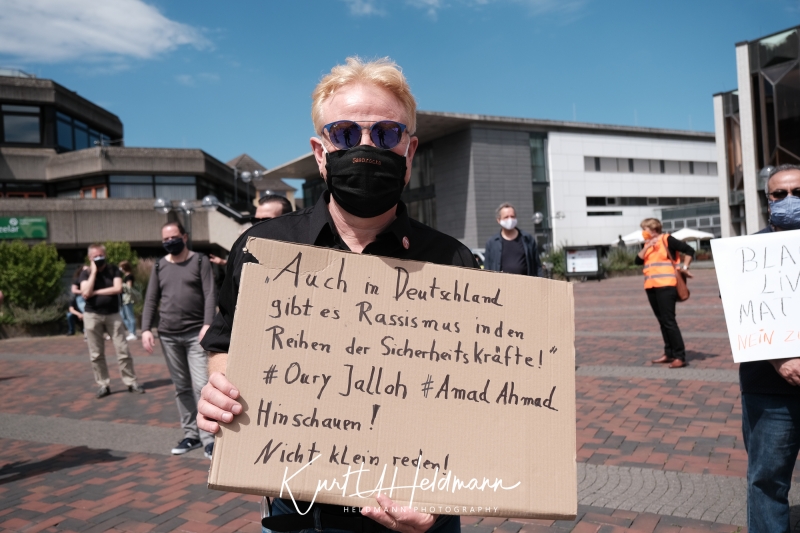 „Auch in Deutschland
gibt es Rassismus in den
Reihen der Sicherheitskräfte!“
#Oury Jalloh #Amad Ahmad
Hinschauen!
Nicht klein reden!
Kurt Heldmann
HELDMANN PHOTOGRAPHY
BLA
LIV
MAT
NEIN Z